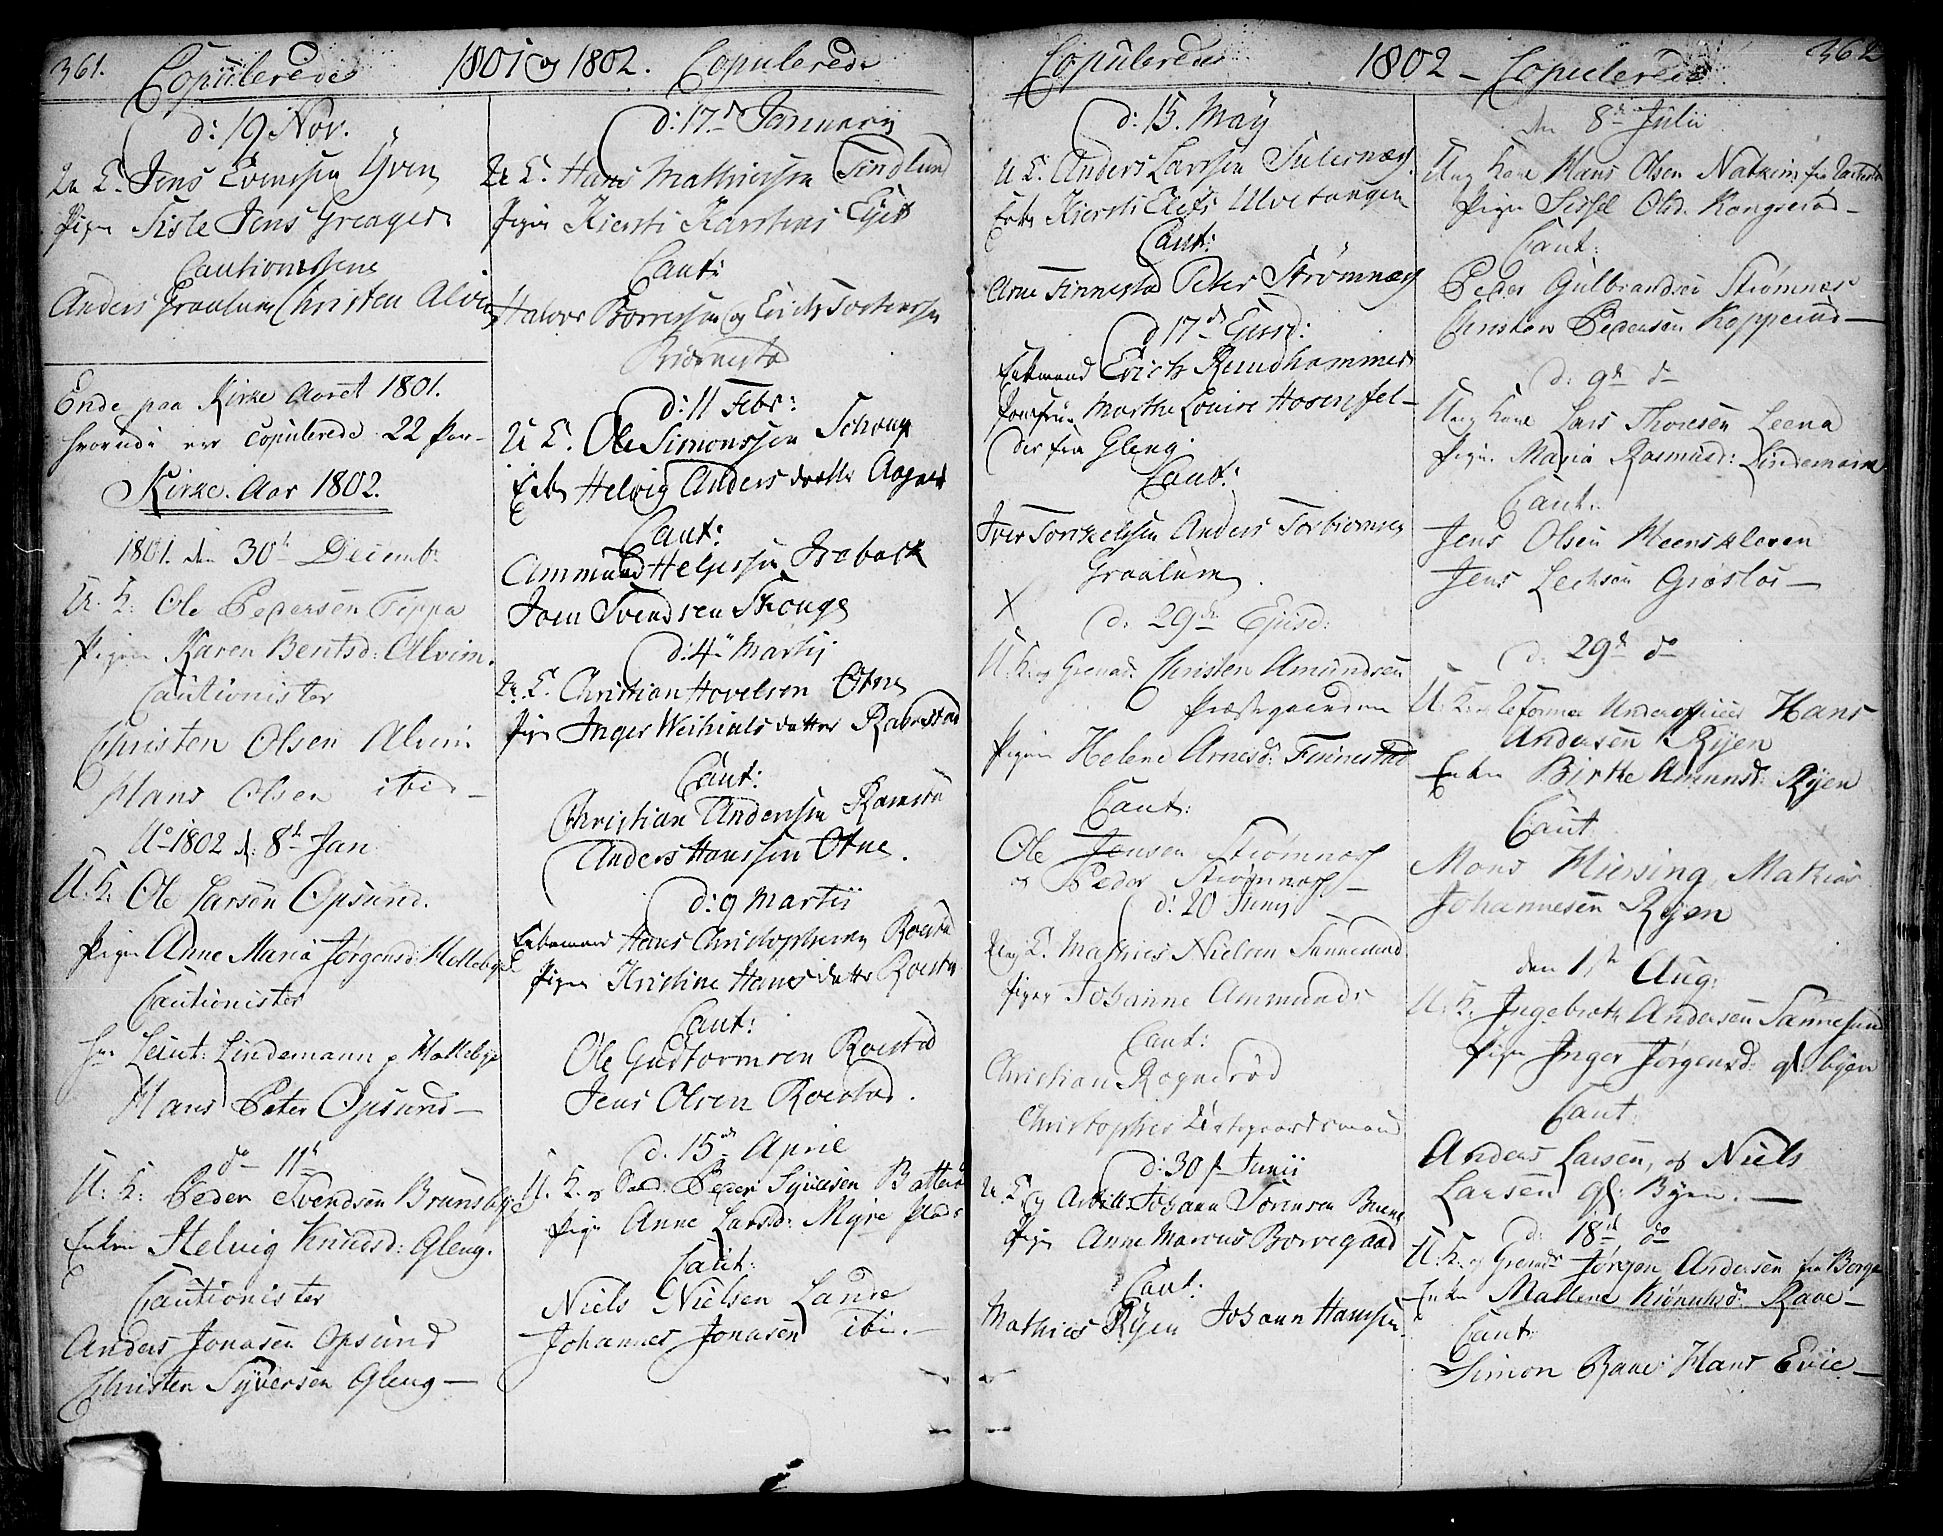 361. Copulerede 1801 og 1802. Copulerede
d: 19 Nov.
U. K. Jens Evenssen
Pigen Sisle Jens Greager
Cautionister
Anders Graalum Christen Alvim
Ende paa Kirke Aaret 1801.
hvorudi er copulerede 22 Par
Kirke-Aar 1802.
1801. den 30t Decemb:
U. K: Ole Pedersen Tippa
Pigen Karen Bentsd: Alvim.
Cautionister
Christen Olsen Alvim
Hans Olsen ibid
Ao 1802 d: 8t Jan
U. K: Ole Larsen Opsund.
Pigen Anne Maria Jørgensd: Hollebye
Cautionister
Hr Leut: Lindemann p Hollebye
Hans Peter Opsund
do 11t
U: K: Peder Svendsen Brunsbye
Enken Helvig Knudsd: Gleng.
Cautionister
Anders Jonasen Opsund
Christen Syversen Gleng
d: 17de Januarij
U. K. Hans Mathiessen Tindlund
Pigen Kiersti Karstens
Caut:
Halvor Borresen og Erich Torkersen
d: 11 Febr:
U K. Ole Simonssen Schouge
Enken Helvig Anders datter
Caut:
Ammund Helgessen
Joen Svendsen Skouge
d: 4de Martij
U. K. Christian Hovelsen Otne
Pigen Inger datter
Caut:
Christian Anderssen
Anders Hanssen Otne.
d: 9 Martii
Enkemand Hans Christophersen Roestad
Pigen Kristine Hans datter Roestad
Caut:
Ole Guttormsen Roestad
Jens Olsen Roestad.
d. 15de April
U. K. og Sold: Peder Syversen
Pigen Anne Larsd: Myre Plads
Caut:
Niels Nielsen Lande
Johannes Jonasen ibi.
Copulerede 1802 - Copulerede 362
d: 15. May
U K. Anders Larssen
Enken Kiersti Elefs Ulvetangen
Caut:
Arne Finnestad Peter Strømnæs
d 17de Ejusd:
Enkemand Erich Rundhammer
Jomfrue Marthe Louise Hosenfel-
der fra Gleng
Caut:
Iver Torkelssen Anders Torbiørnsen
Graalum
X
d: 29de Ejusd:
U. K. og Grenad: Christen Amundsen
Præstegaarden
Pigen Helene Arnesd: Finnestad
Caut:
Ole Jensen Strømnæss
og Peder Strømnæss
d: 20 Juny
Ung K. Mathies Nielsen Sannesund
Pigen Johanne Ammunds
Caut:
Christian Rognerød
Christopher
d: 30te Junii
U. K. og Johann Sørensen
Pigen Anne Marcus Borregaard
Caut:
Mathies Ryen Johann Hanssen.
den 8de Julii
Ung Karl Hans Olsen
Pigen Sissel Olsd. Kongsrød
Caut:
Peder Gulbrandsen Strømnæs
Christen Pedersen Kopperud
d: 9de do
Ung Karl Lars Thoresen Leena
Pigen Maria Rasmusd: Lindemarck
Caut:
Jens Olsen Meenskleven
Jens Grøsløs
d: 29de do
U: K. og reformeret Underofficer Hans
Andersen Ryen
Enken Birthe Amunds: Ryen
Caut
Mons Hiersing, Mathias
Johannesen Ryen
den 1te Aug:
U. K. Ingebreth Andersen Sannesund
Pigen Inger Jørgensd: gl: byen
Caut:
Anders Larsen, og Niels
Larsen gl: Byen.
d: 18de do
U. K. og Grenad: Jørgen Andersen fra Borge
Enken Mallene Rave
Caut
Simon Rave: Hans Evie